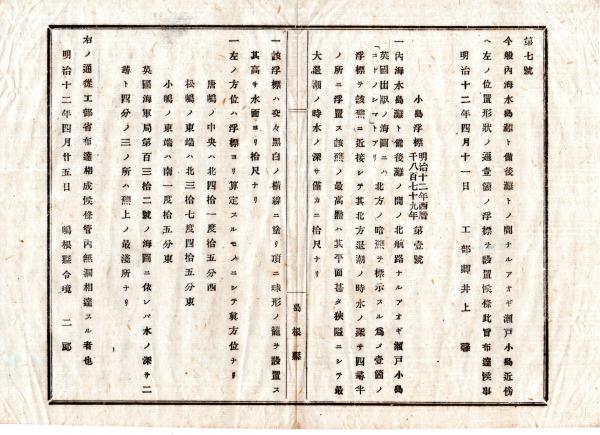 第七號
今般內海水島灘ト備後灘トノ間ナルアオギ瀨戶小島近傍
ヘ左ノ位置形狀ノ通壹箇ノ浮標ヲ設置候條此旨布達候事
明治十二年四月十一日 工部卿井上 馨
小島浮標 明治十二年西曆千八百七十九年 第壹號
一內海水島灘ト備後灘ノ間ノ北航路ナルアオギ瀨戶小島
英國出版ノ海圖ニハ北方ノ暗礁ヲ標示スル爲メ壹箇ノ
「コドノシマ」トアリ
浮標ヲ該礁ニ近接シテ其北方退潮ノ時水ノ深サ四尋半
ノ所ニ浮置ス該礁ノ最高點ハ其平面甚タ狹隘ニシテ最
大退潮ノ時水ノ深サ僅カニ拾尺ナリ
島根縣
一該浮標ハ交々黑白ノ橫線ニ塗リ頂ニ球形ノ籠ヲ設置ス
其高サ水面ヨリ拾尺ナリ
一左ノ方位ハ浮標ヨリ算定スルモノニシテ眞方位ナリ
唐嶋ノ中央ハ北四拾一度拾五分西
松嶋ノ東端ハ北三拾七度四拾五分東
小嶋ノ東端ハ南一度拾五分東
英國海軍局第百三拾二號ノ海圖ニ依レバ水ノ深サ二
尋ト四分ノ三ノ所ハ礁上ノ最淺所ナリ
右ノ通從工部省布達相成候條管內無漏相達スル者也
明治十二年四月廿五日 嶋根縣令境 二郞